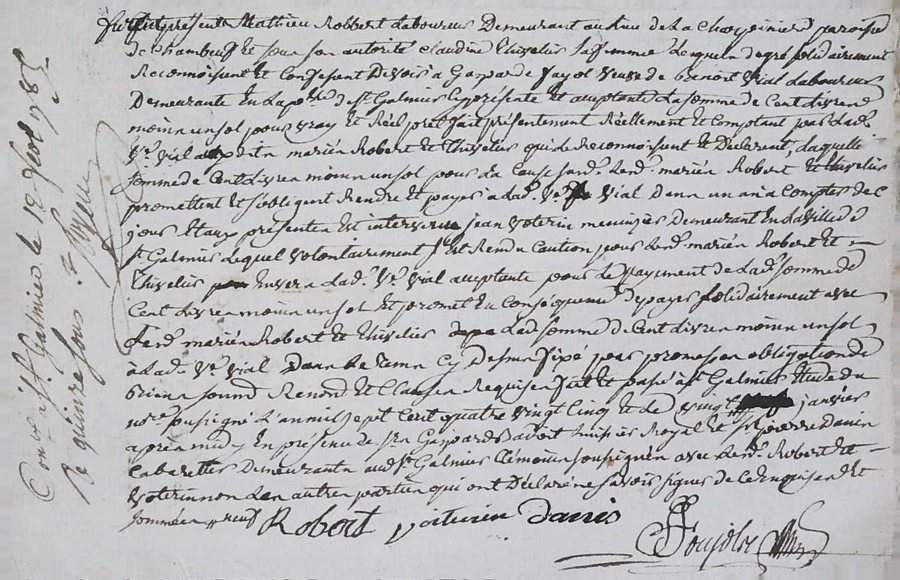 furent présents Mathieu Robbert laboureur Demeurant au lieu de La paroisse
de Chambeuf Et sous son autorité claudine Thivelier sa femme Lesquels de gré solidairement
Reconnoisent Et Confesent Devoir a Gasparde fayol veuve de benoit vial laboureur
Demeurante En la psse de st Galmier Cy présente Et acceptante La somme de Cent Livres
moins un sol pour vray Et Réel prêt fait présentement Réellement Et Comptant par lade
ve vial auxdits mariés Robert Et Thivelier qui Le Reconnoisent Et Déclarent, Laquelle
somme de Cent Livres moins un sol pour La Cause susde Lesds mariés Robert Et thivelier
promettent Et s'obligent Rendre Et payer a lade ve vial Dans un an a Compter de Ce
jour Et aux présentes Est intervenu jean voterin menuizier Demeurant En La ville de
st Galmier Lequel volontairement s'est Rendu Caution pour Lesds mariés Robert Et
Thivelier Envers Lade ve vial acceptante pour Le payement de Lade somme de
Cent Livres moins un sol Et promet En Conséquence de payer solidairement avec
Lesds mariés Robert Et Thivelier Lade somme de Cent Livres moins un sol
a lade ve vial Dans Le Terme Cy Dessus fixé par promesses obligation de
biens soumd Renond Et Clauses Requises fait Et passé a st Galmier Etude du
nore soussigné L'an mil sept Cent quatre vingt Cinq Et Le vingt janvier
après midy En présence de sr Gaspard huissier Royal Et sr pierre Danis
Cabaretier Demeurants audt st Galmier Témoins soussignés avec Lesds Robert Et
voterin non Les autres parties qui ont Déclaré ne savoir signer de Ce Enquises Et
sommées
Robert voiturin Danis
Conté à st Galmier le 19 1785
R quinze sous